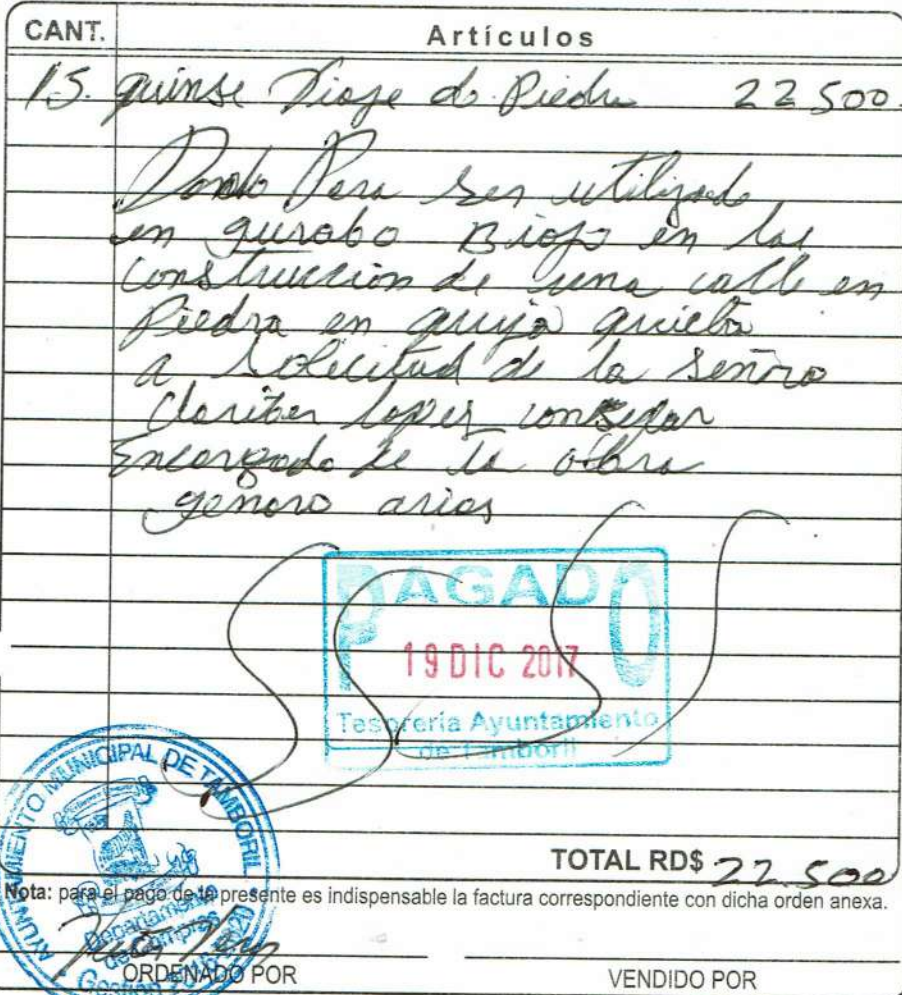 CANT. Artículos
15. quinse Viaje de Piedra 22500.
Donado Para ser utilizado
en gurabo Biojo en las
construccion de una calle en
Piedra en quija quieta
a solicitud de la señora
Clariber lopez
Encargado de la obra
genaro arias
PAGADO
19 DIC 2017
Tesorería Ayuntamiento
de Tamboril
AYUNTAMIENTO MUNICIPAL DE TAMBORIL
Departamento
de Compras
Gestión
TOTAL RD$ 22.500
Nota: para el pago de la presente es indispensable la factura correspondiente con dicha orden anexa.
ORDENADO POR VENDIDO POR